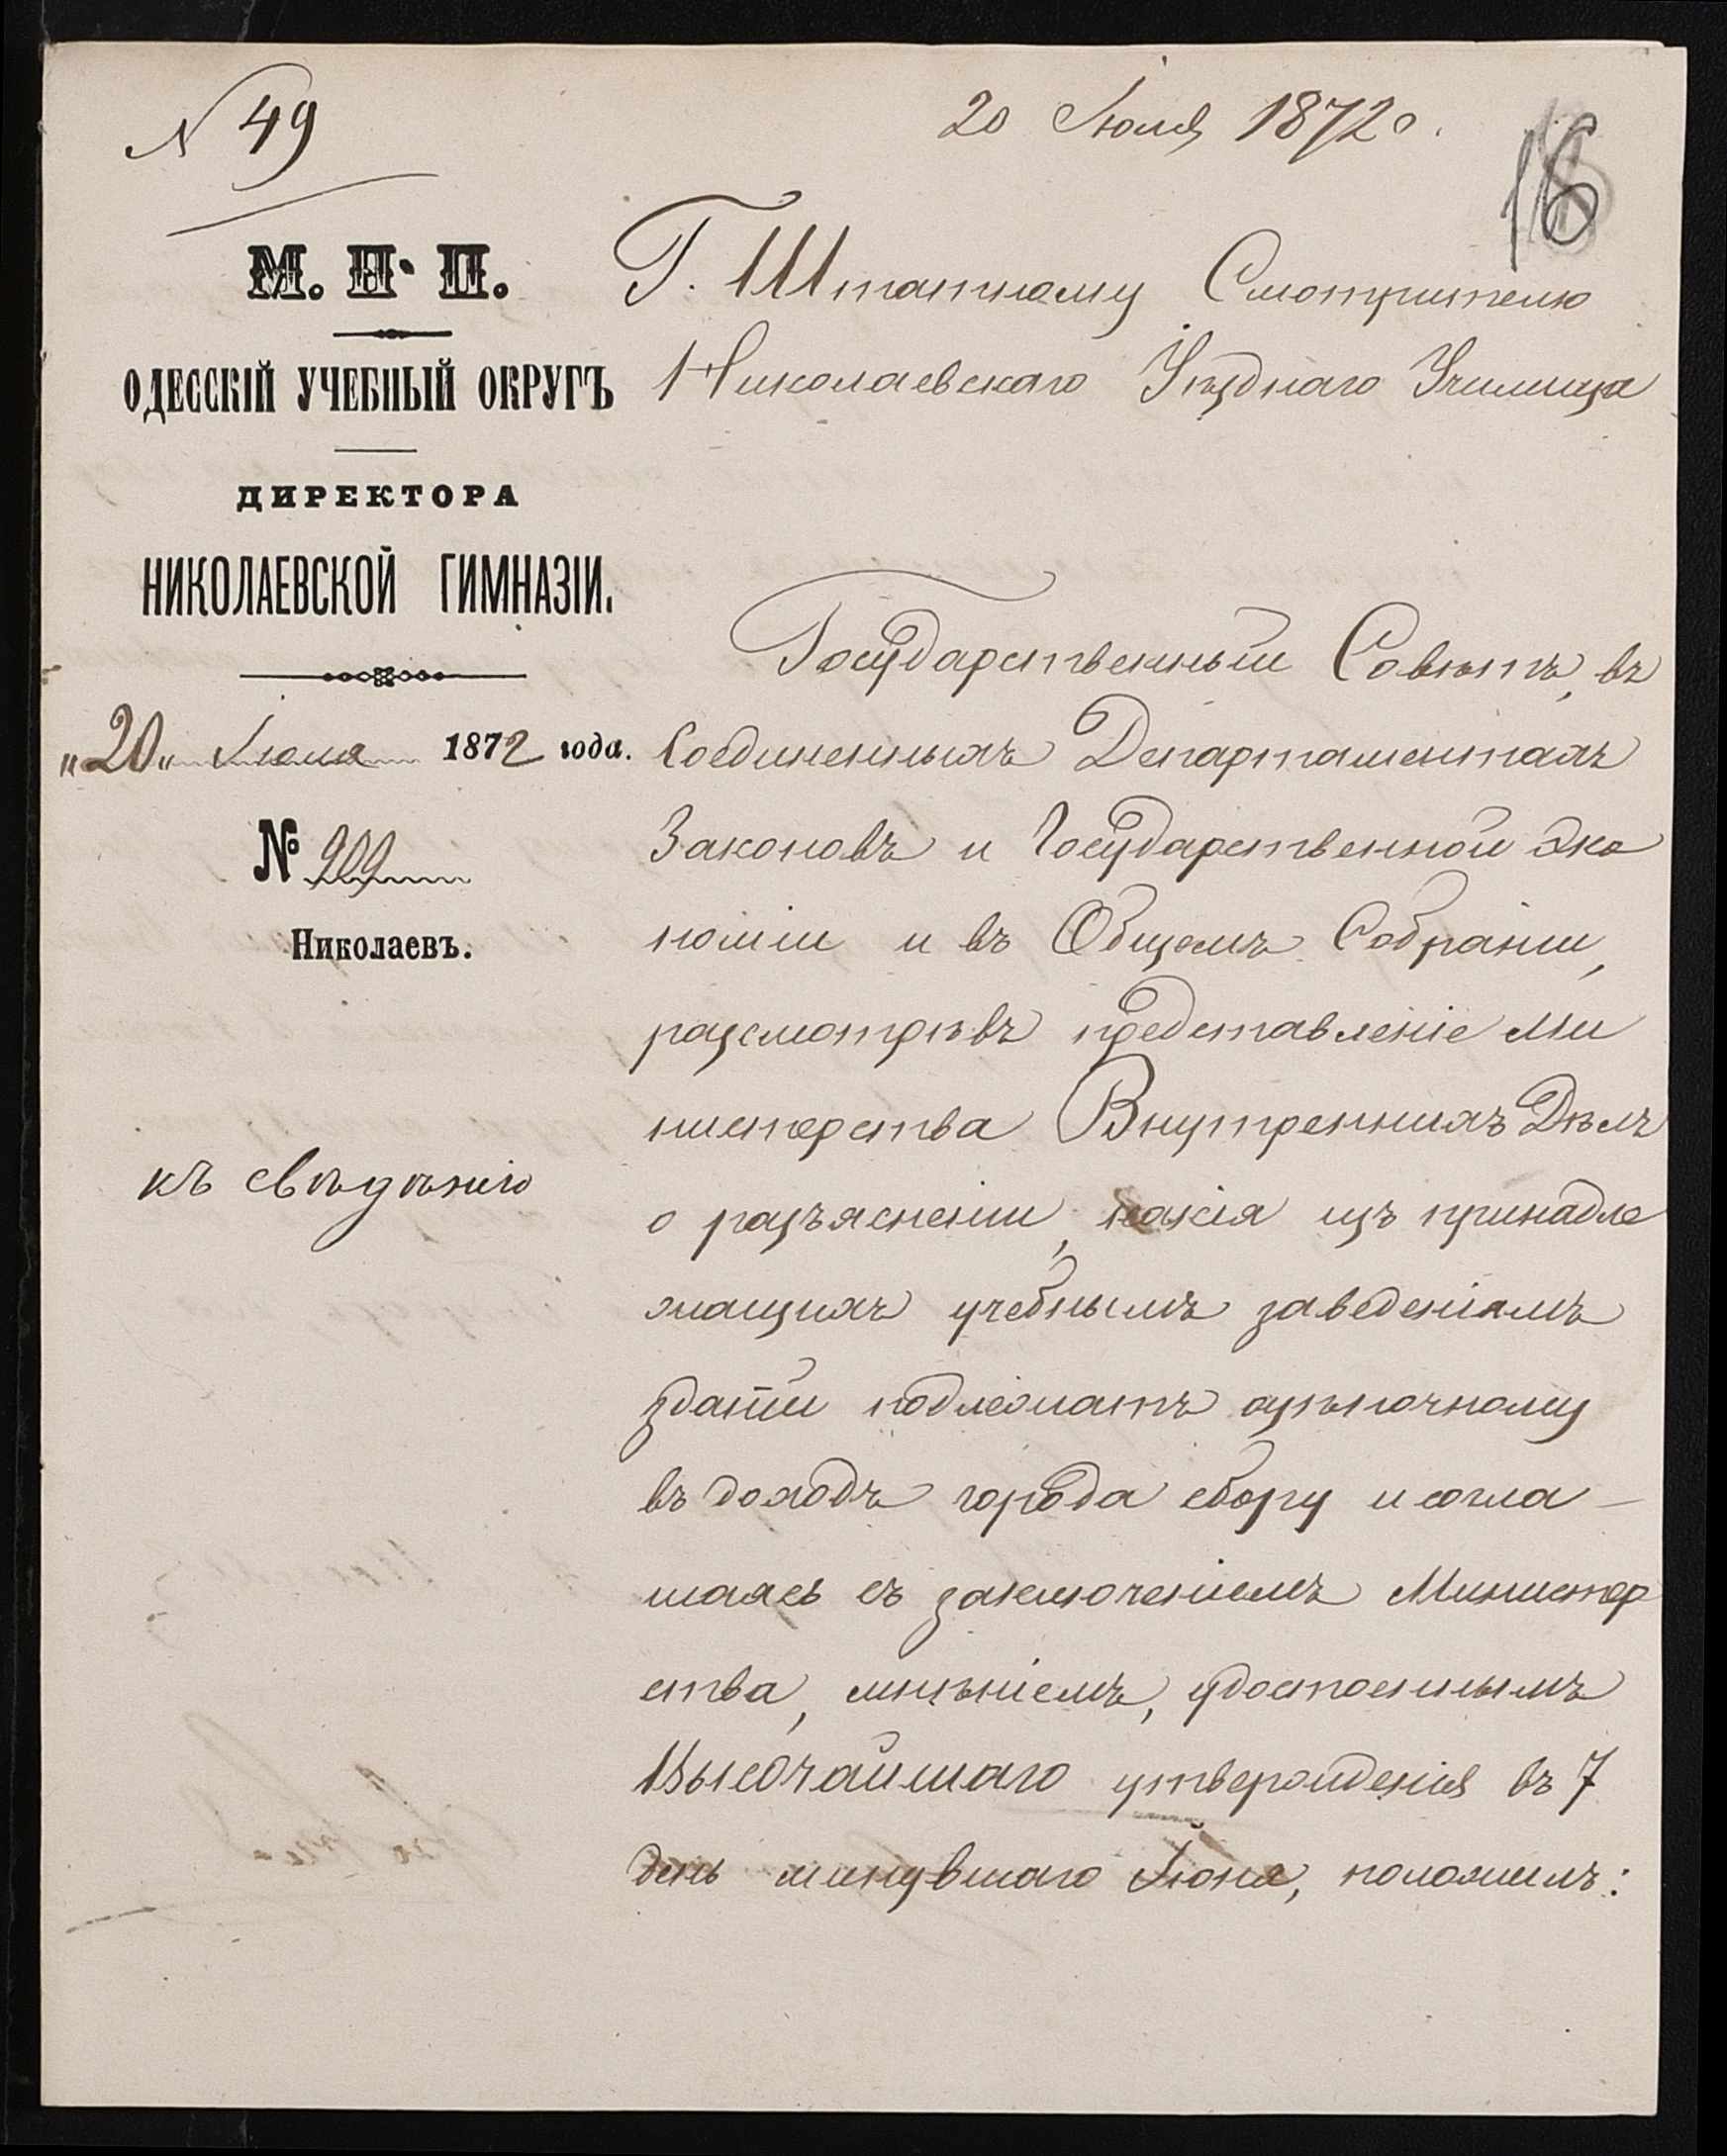 N 49
20 Июля 1872 г.
16
М. Н. П.
ОДЕССКІЙ УЧЕБНЫЙ ОКРУГЪ
ДИРЕКТОРА
НИКОЛАЕВСКОЙ ГИМНАЗІИ.
„20„ Іюля 1872 года.
№ 909
Николаевъ.
къ свѣдѣнію
Г. Штатному Смотрителю
Николаевскаго Уѣзднаго Училища
Государственный Совѣтъ, въ
Соединенныхъ Департаментахъ
Законовъ и Государственной Эко
номіи и въ Общемъ Собраніи,
разсмотрѣвъ представленіе Ми
нистерства Внутреннихъ Дѣлъ
о разъясненіи, какія изъ принадле
жащихъ учебнымъ заведеніямъ
зданій подлежатъ оцѣночному
въ доходъ города сбору и согла-
шаясь съ заключеніемъ Министер
ства, мнѣніемъ, удостоеннымъ
Высочайшаго утвержденія въ 7
день минувшаго Іюня, положилъ: